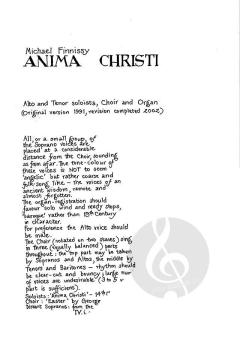 Michael Finnissy
ANIMA CHRISTI
Alto and Tenor soloists, Choir and Organ
(Original version 1991, revision completed 2002)
All, or a small group, of
the Soprano voices are
placed at a considerable
distance from the Choir, sounding
as from afar. The tone-colour of
these voices is NOT to seem
'angelic' but rather coarse and
folk-song like - the voices of an
ancient wisdom, remote and
almost forgotten.
The organ-registration should
favour solo wind and reedy stops,
'baroque' rather than 19th Century
in character.
For preference the Alto voice should
be male.
The Choir (notated on two staves) sing
in three (equally balanced) parts
throughout: the top part may be taken
by Sopranos and Altos, the middle by
Tenors and Baritones - rhythm should
be clear-cut and bouncy; large num
of voices are undesirable (3 to 5 v
part is sufficient).
Soloists: 'Anima Christi' - 14th
Choir: 'Easter' by George
Distant Sopranos: from the
IV. i.